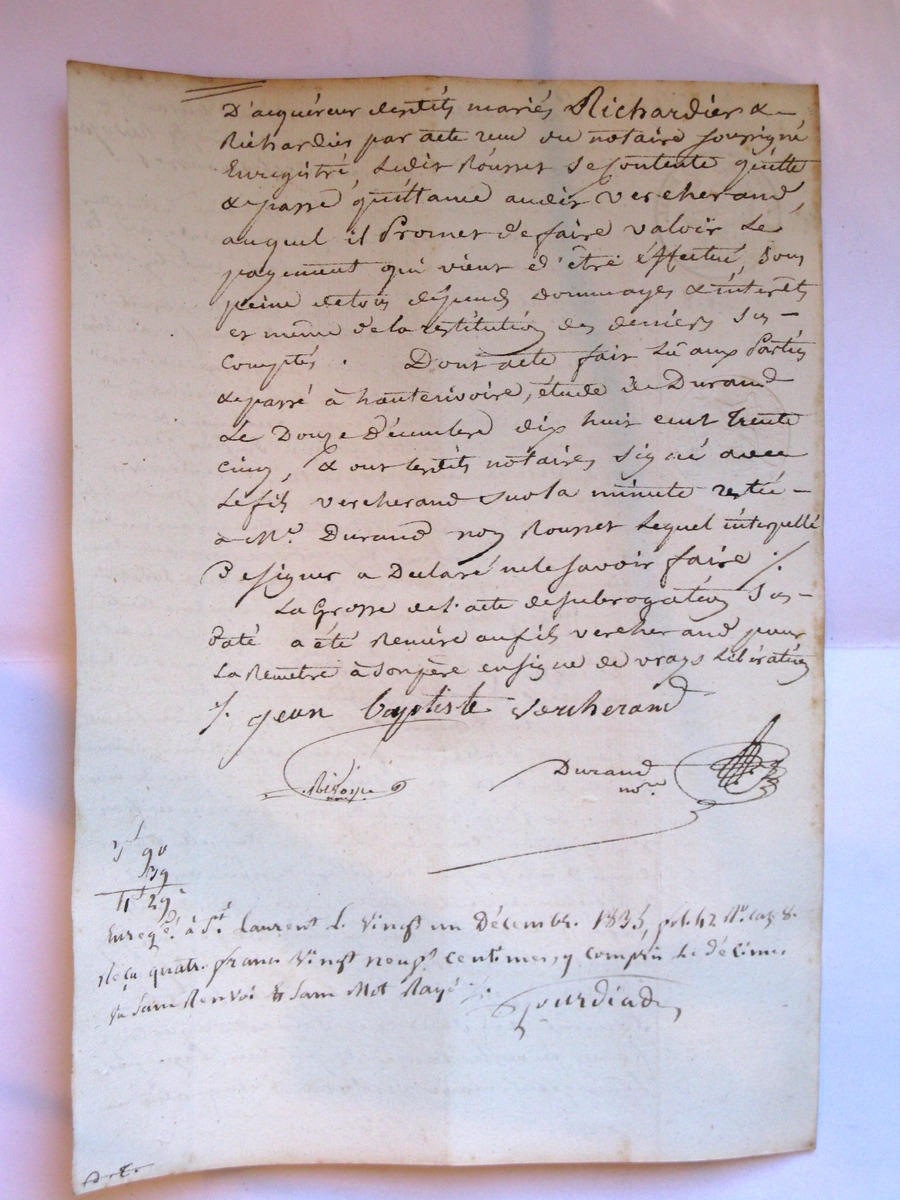 D'acquéreur desdits mariés Richardier &
Richardier par acte reçu du notaire soussigné
Enregistré, Ledit Rousset se contente quitte
& passe quittance audit Vercherand,
auquel il Promet de faire valoir Le
payement qui vient d'être éffectué, sous
peine de tous dépends dommages & interêts
et même de la restitution des deniers sus-
comptés. Dont acte fait Lû aux Parties
& passé à hauterivoire, étude de Durand
Le Douze Décembre dix huit cent trente
cinq, & ont lesdits notaires signé avec
Le fils vercherand sur la minute restée
à Me. Durand non Rousset Lequel interpellé
De signer a Déclaré ne le savoir faire ./.
La Grosse de l'acte de subrogation sus-
daté a été Remise au fils vercherand pour
La Remettre à son père en signe de vraye Libération
./. jean baptiste vercherand
Durand
nore
3f 90
39
4f 29c
Enregé. à St. Laurent le vingt un Décembre 1835, fol. 42 Ro. cas 8.
Reçu quatre francs vingt neuf centimes, y compris le décime.
sans Renvoi & sans Mot Rayé ./.